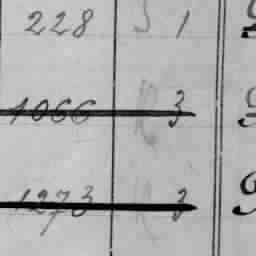 228 1
1066 3
1273 3